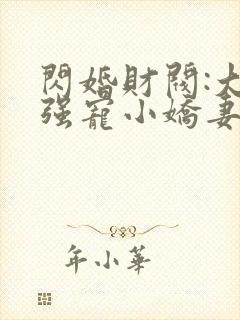 閃婚財閥:大
强寵小嬌妻
年小華